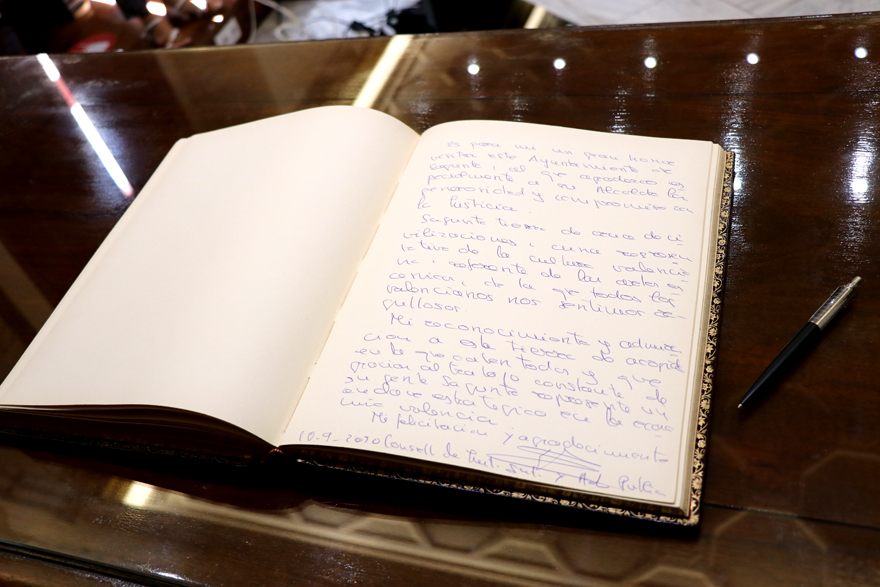 Es para mi un gran honor
visitar este Ayuntamiento de
Sagunto, al que agradezco es
pecialmente a su Alcalde la
generosidad y compromiso con
la Justicia.
Sagunto tierra de cruce de ci
vilizaciones, cuna represen
tativa de la cultura valencia
na, referente de las artes es
cénicas, de la que todos los
valencianos nos sentimos or-
gullosos.
Mi reconocimiento y admira-
ción a esta tierra de acogida
en la que caben todos y que
gracias al trabajo constante de
su gente Sagunto representa un
enclave estratégico en la econo
mía valenciana.
Mi felicitación y agradecimiento
10-9-2020 Consell de Just. Int. y Adm. Pública